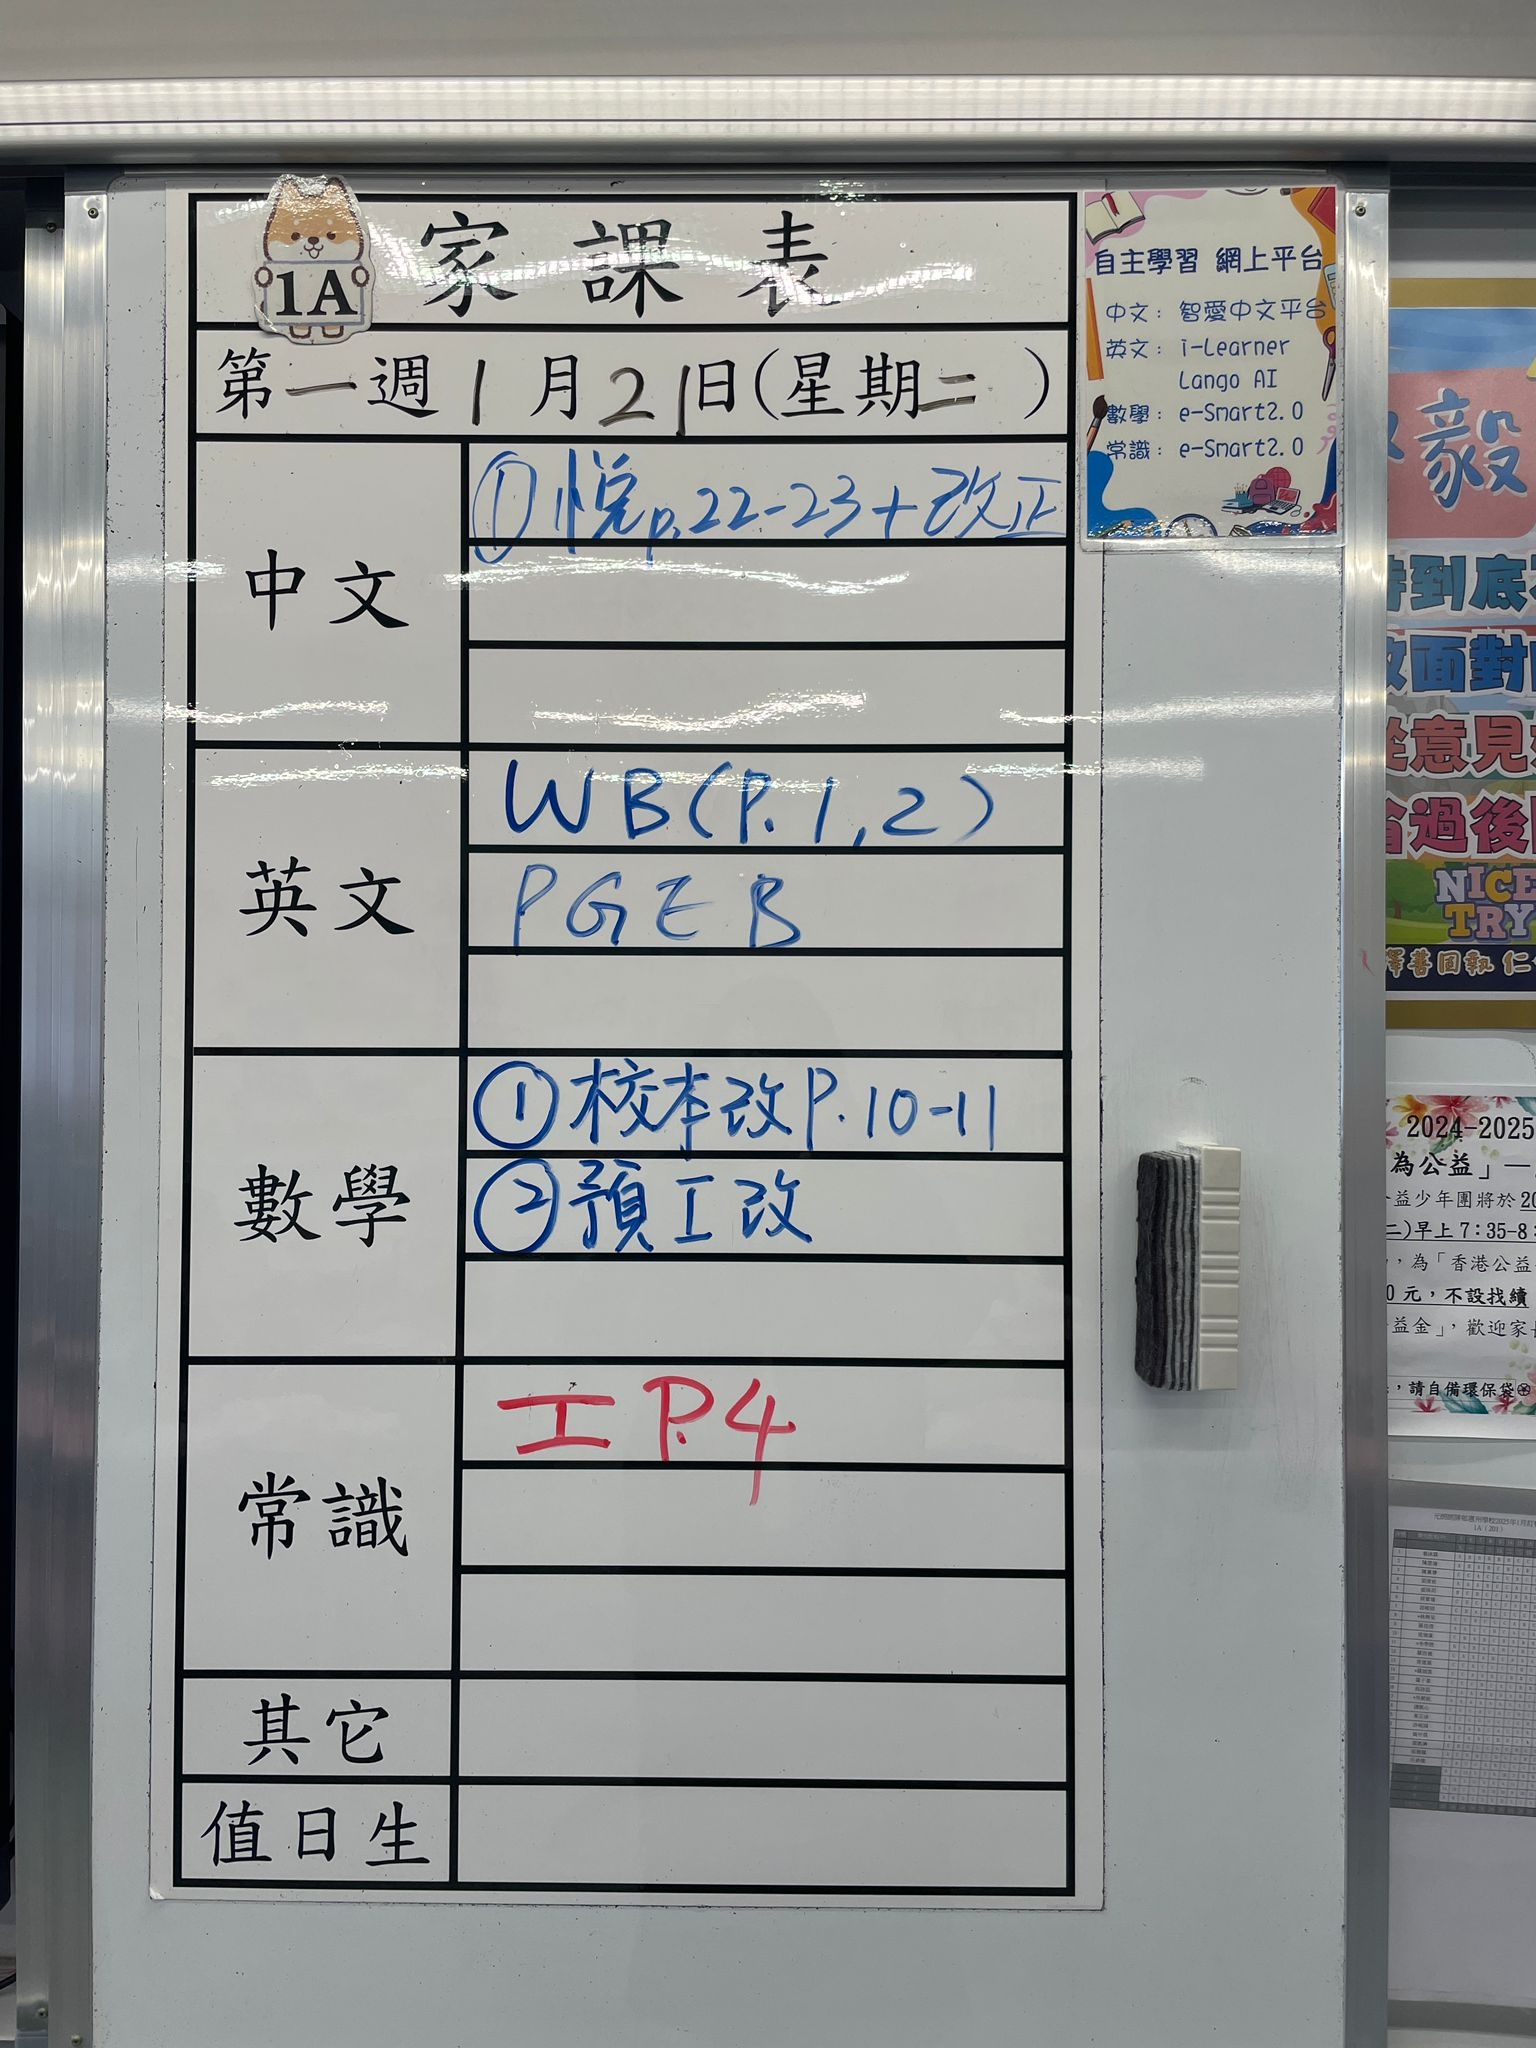 家課表
1A
第一週1月21日(星期二)
中文
①悅p.22-23+改正
英文
WB(P.1,2)
PGEB
數學
①校本改P.10-11
②預工改
常識
工P.4
其它
值日生
自主學習 網上平台
中文：智愛中文平台
英文：i-Learner
Lango AI
數學：e-Smart2.0
常識：e-Smart2.0
毅
到底
面對
意見
過後
NICE
TRY
擇善固執 仁
2024-2025
為公益」一
益少年團將於 20
二)早上 7:35-8:
，為「香港公益
0 元，不設找續
益金」，歡迎家
，請自備環保袋
1A (201)